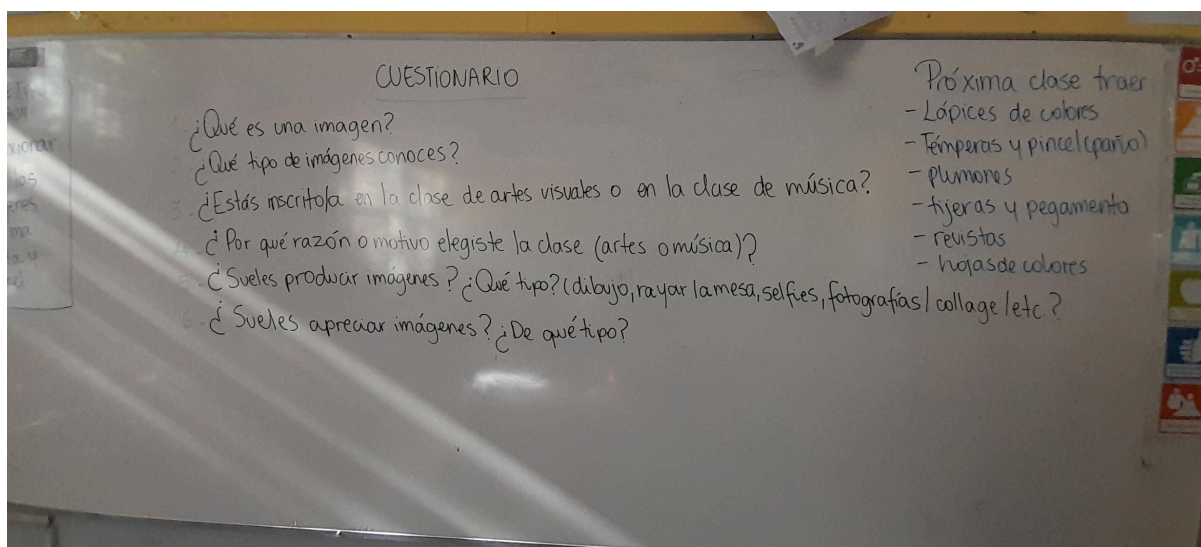 CUESTIONARIO
¿Qué es una imagen?
¿Qué tipo de imágenes conoces?
3.- ¿Estás inscrito/a en la clase de artes visuales o en la clase de música?
4.- ¿Por qué razón o motivo elegiste la clase (artes o música)?
¿Sueles producir imágenes? ¿Qué tipo? (dibujo, rayar la mesa, selfies, fotografías/ collage/etc.?
6.- ¿Sueles apreciar imágenes? ¿De qué tipo?
Próxima clase traer
- Lápices de colores
- Témperas y pincel (paño)
- plumones
- tijeras y pegamento
- revistas
- hojas de colores